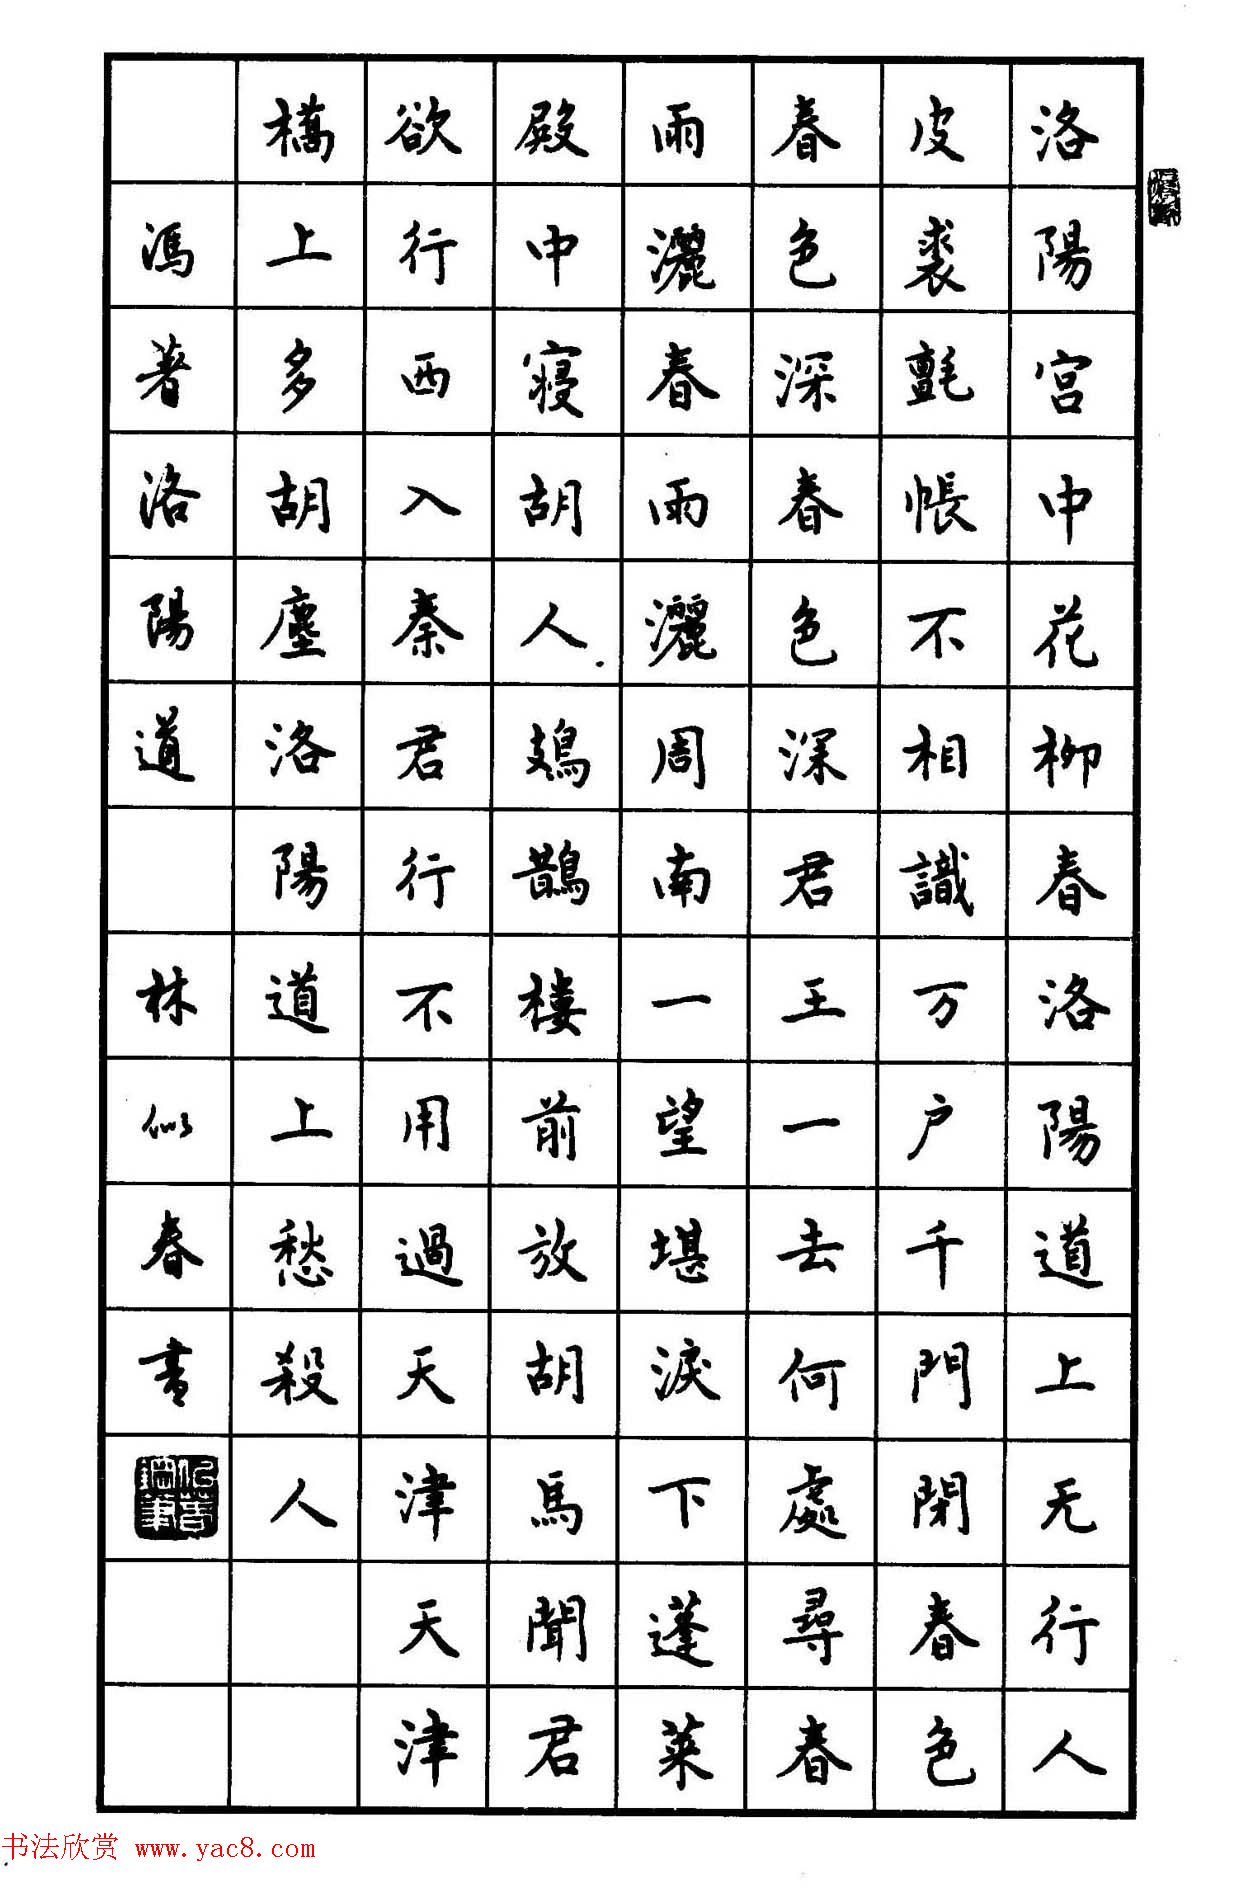 洛陽宮中花柳春洛陽道上无行人
皮裘氈帳不相識万户千門閉春色
春色深春色深君王一去何處尋春
雨灑春雨灑周南一望堪淚下蓬萊
殿中寢胡人鳷鵲樓前放胡馬聞君
欲行西入秦君行不用過天津天津
橋上多胡塵洛陽道上愁殺人
馮著洛陽道 林似春書
书法欣赏 www.yac8.com